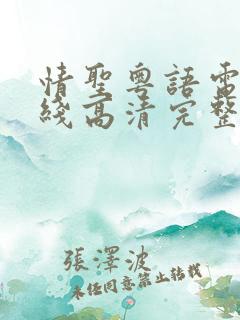 情聖粵語電
綫高清完整
張澤波
未经同意禁止转载